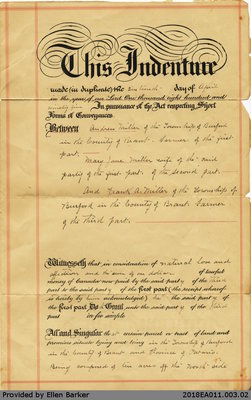 This Indenture
made (in duplicate) the day of April
in the year of our Lord One thousand eight hundred and
ninety five In pursuance of the Act respecting Short
Forms of Conveyances
Between Andrew Miller of the Township of Burford
in the County of Brant Farmer of the first
part.
Mary Jane Miller wife of the said
party of the first part of the second part.
And Frank A. Miller of the Township of
Burford in the County of Brant Farmer
of the third part.
Witnesseth that in consideration of natural love and
affection and the sum of one dollar of lawful
money of Canada now paid by the said part y of the third
part to the said part y of the first part (the receipt whereof
is hereby by him acknowledged) he the said part y of
the first part Do th Grant unto the said part y of the third
part in fee simple
All and Singular th at certain parcel or tract of land and
premises situate lying and being in the Township of Burford
in the County of Brant and Province of Ontario
Being composed of ten acres off the North side
Provided by Ellen Barker
2018EA011.003.01